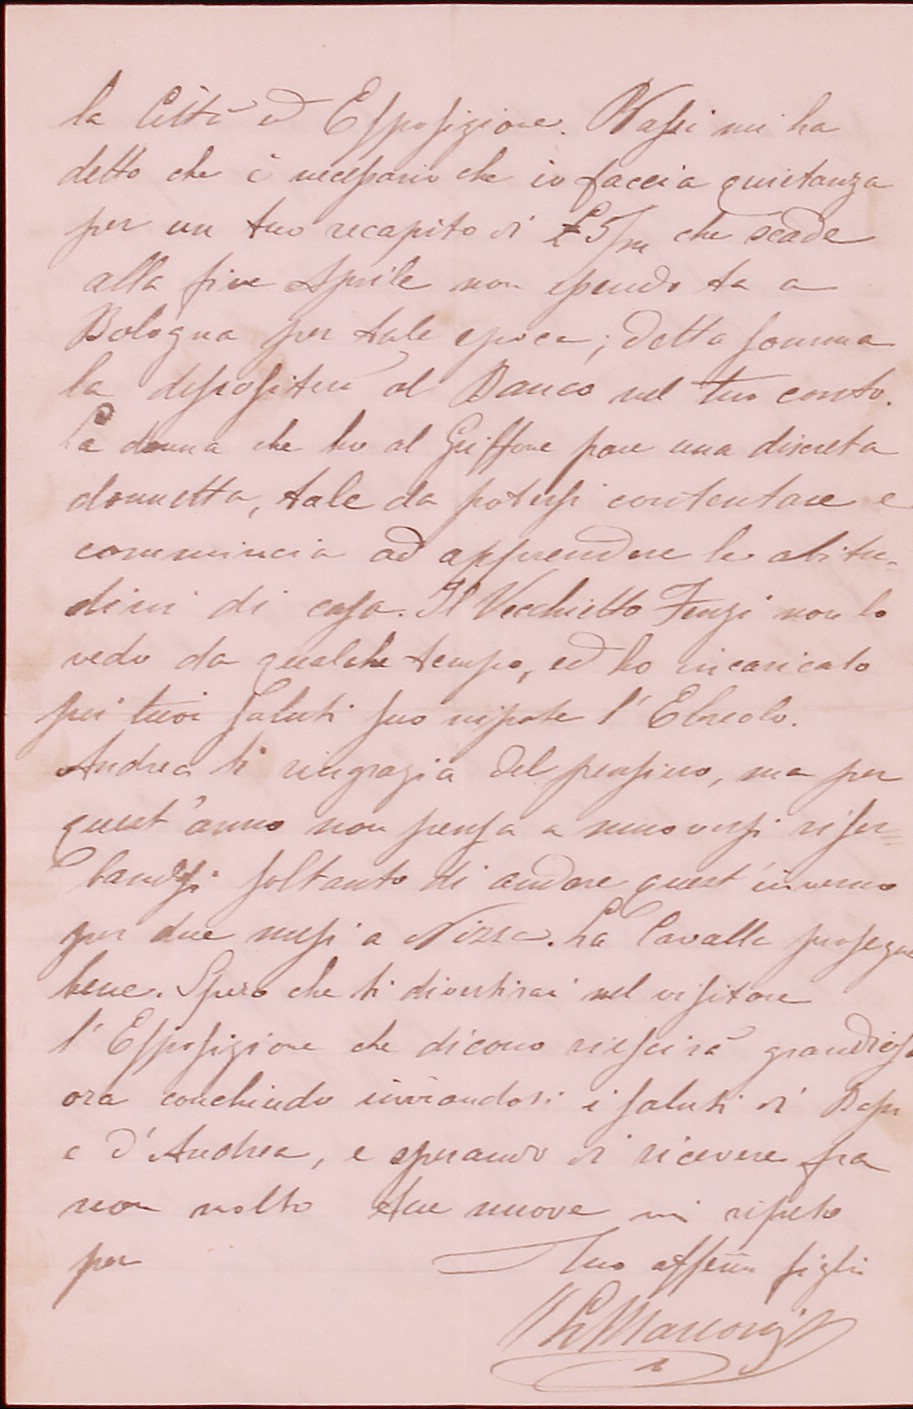 la Città ed Esposizione. Nassi mi ha
detto che è necessario che io faccia quietanza
per un tuo recapito di £ 5/m che scade
alla fine Aprile non essendo tu a
Bologna per tale epoca; detta somma
la depositerò al Banco nel tuo conto.
La donna che ho al Griffone pare una discreta
donnetta, tale da potersi contentare e
commincia ad apprendere le abitu-
dini di casa. Il Vecchietto Fenzi non lo
vedo da qualche tempo, ed ho incaricato
pei tuoi saluti suo nipote l'Ebreolo.
Andrea ti ringrazia del pensiero, ma per
quest'anno non pensa a muoversi riser=
bandosi soltanto di andare quest'inverno
per due mesi a Nizza. La Cavalla prosegue
bene. Spero che ti divertirai nel visitare
l'Esposizione che dicono riescirà grandiosa
ora conchiudo inviandoti i saluti di
e d'Andrea, e sperando di ricevere fra
non molto tue nuove mi ripeto
per Tuo affemo figlio
Marconi